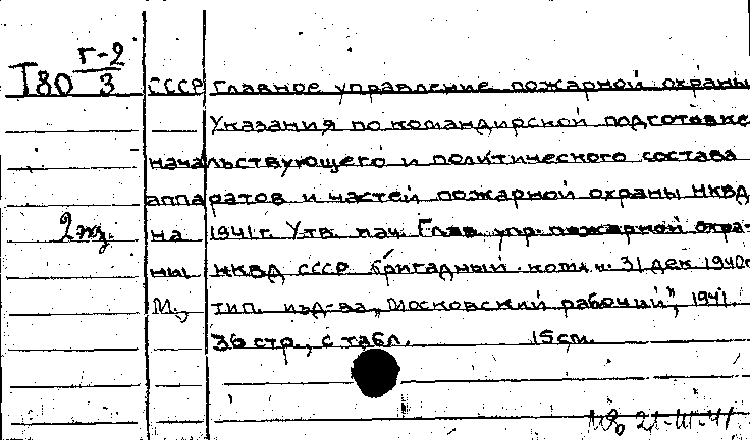 Т80 Г-2/3
СССР Главное управление пожарной охраны
Указания по командирской подготовке
начальствующего и политического состава
аппаратов и частей пожарной охраны НКВД
2 экз. на 1941 г. Утв. нач. Глав. упр. пожарной охра-
ны НКВД СССР бригадный 31 дек 1940г
М., тип. изд-ва „Московский рабочий", 1941.
36 стр., с табл. 15 см.
21-III-41